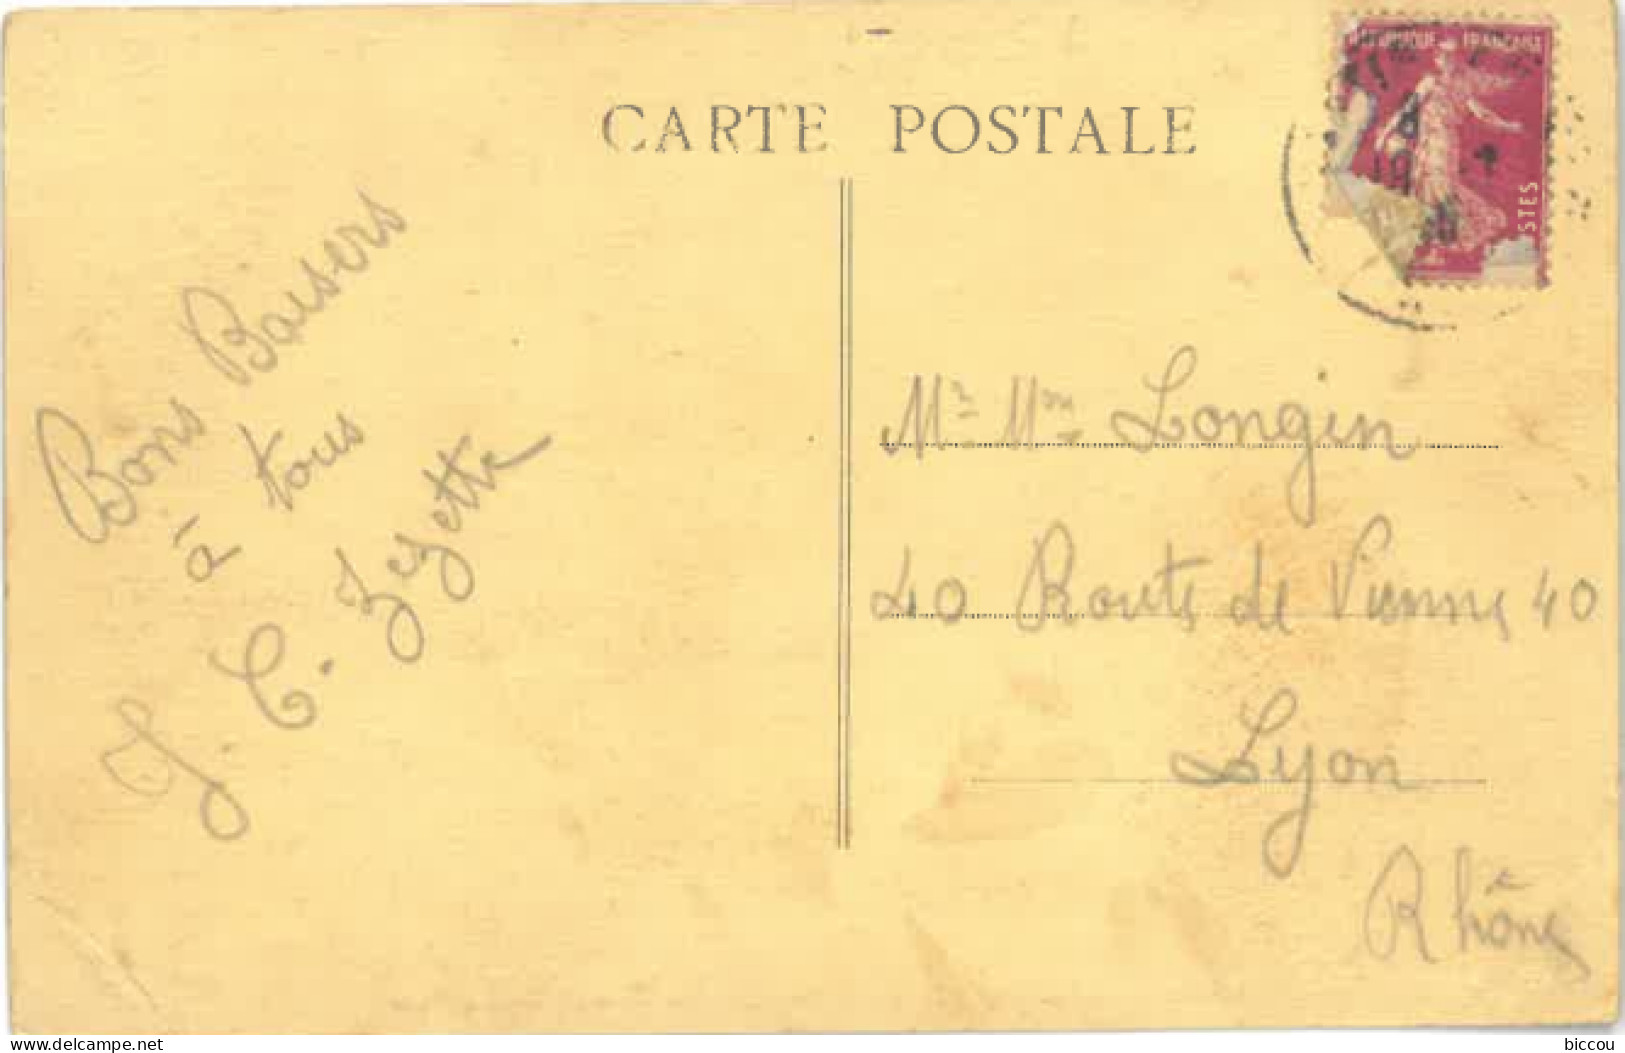 CARTE POSTALE
RÉPUBLIQUE FRANÇAISE
POSTES
Bons Baisers
à tous
J. C. Zezette
Mr Mme Longin
40 Route de Vienne 40
Lyon
Rhône
biccou